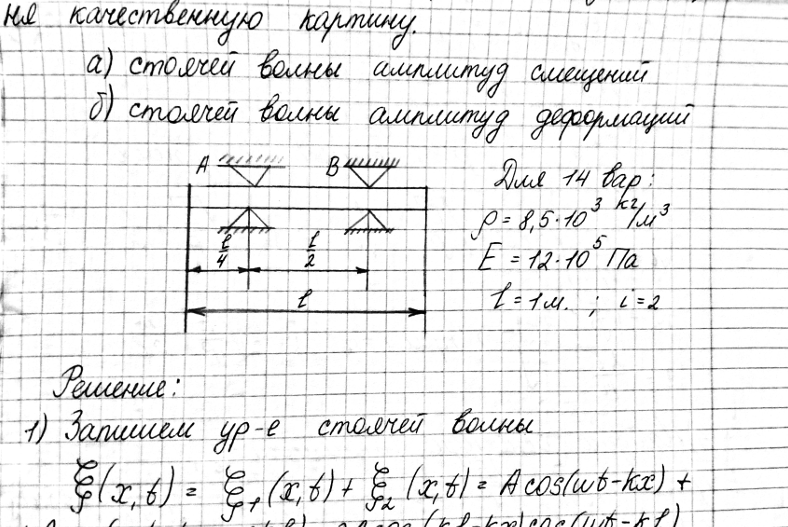 ня качественную картину.
а) стоячей волны амплитуд смещений
б) стоячей волны амплитуд деформаций
A B
Для 14 вар:
ρ = 8,5·10³ кг/м³
E = 12·10⁵ Па
l = 1м. ; i = 2
l/4 l/2
l
Решение:
1) Запишем ур-е стоячей волны
ξ(x,t) = ξ₁(x,t) + ξ₂(x,t) = A cos(ωt-kx) +